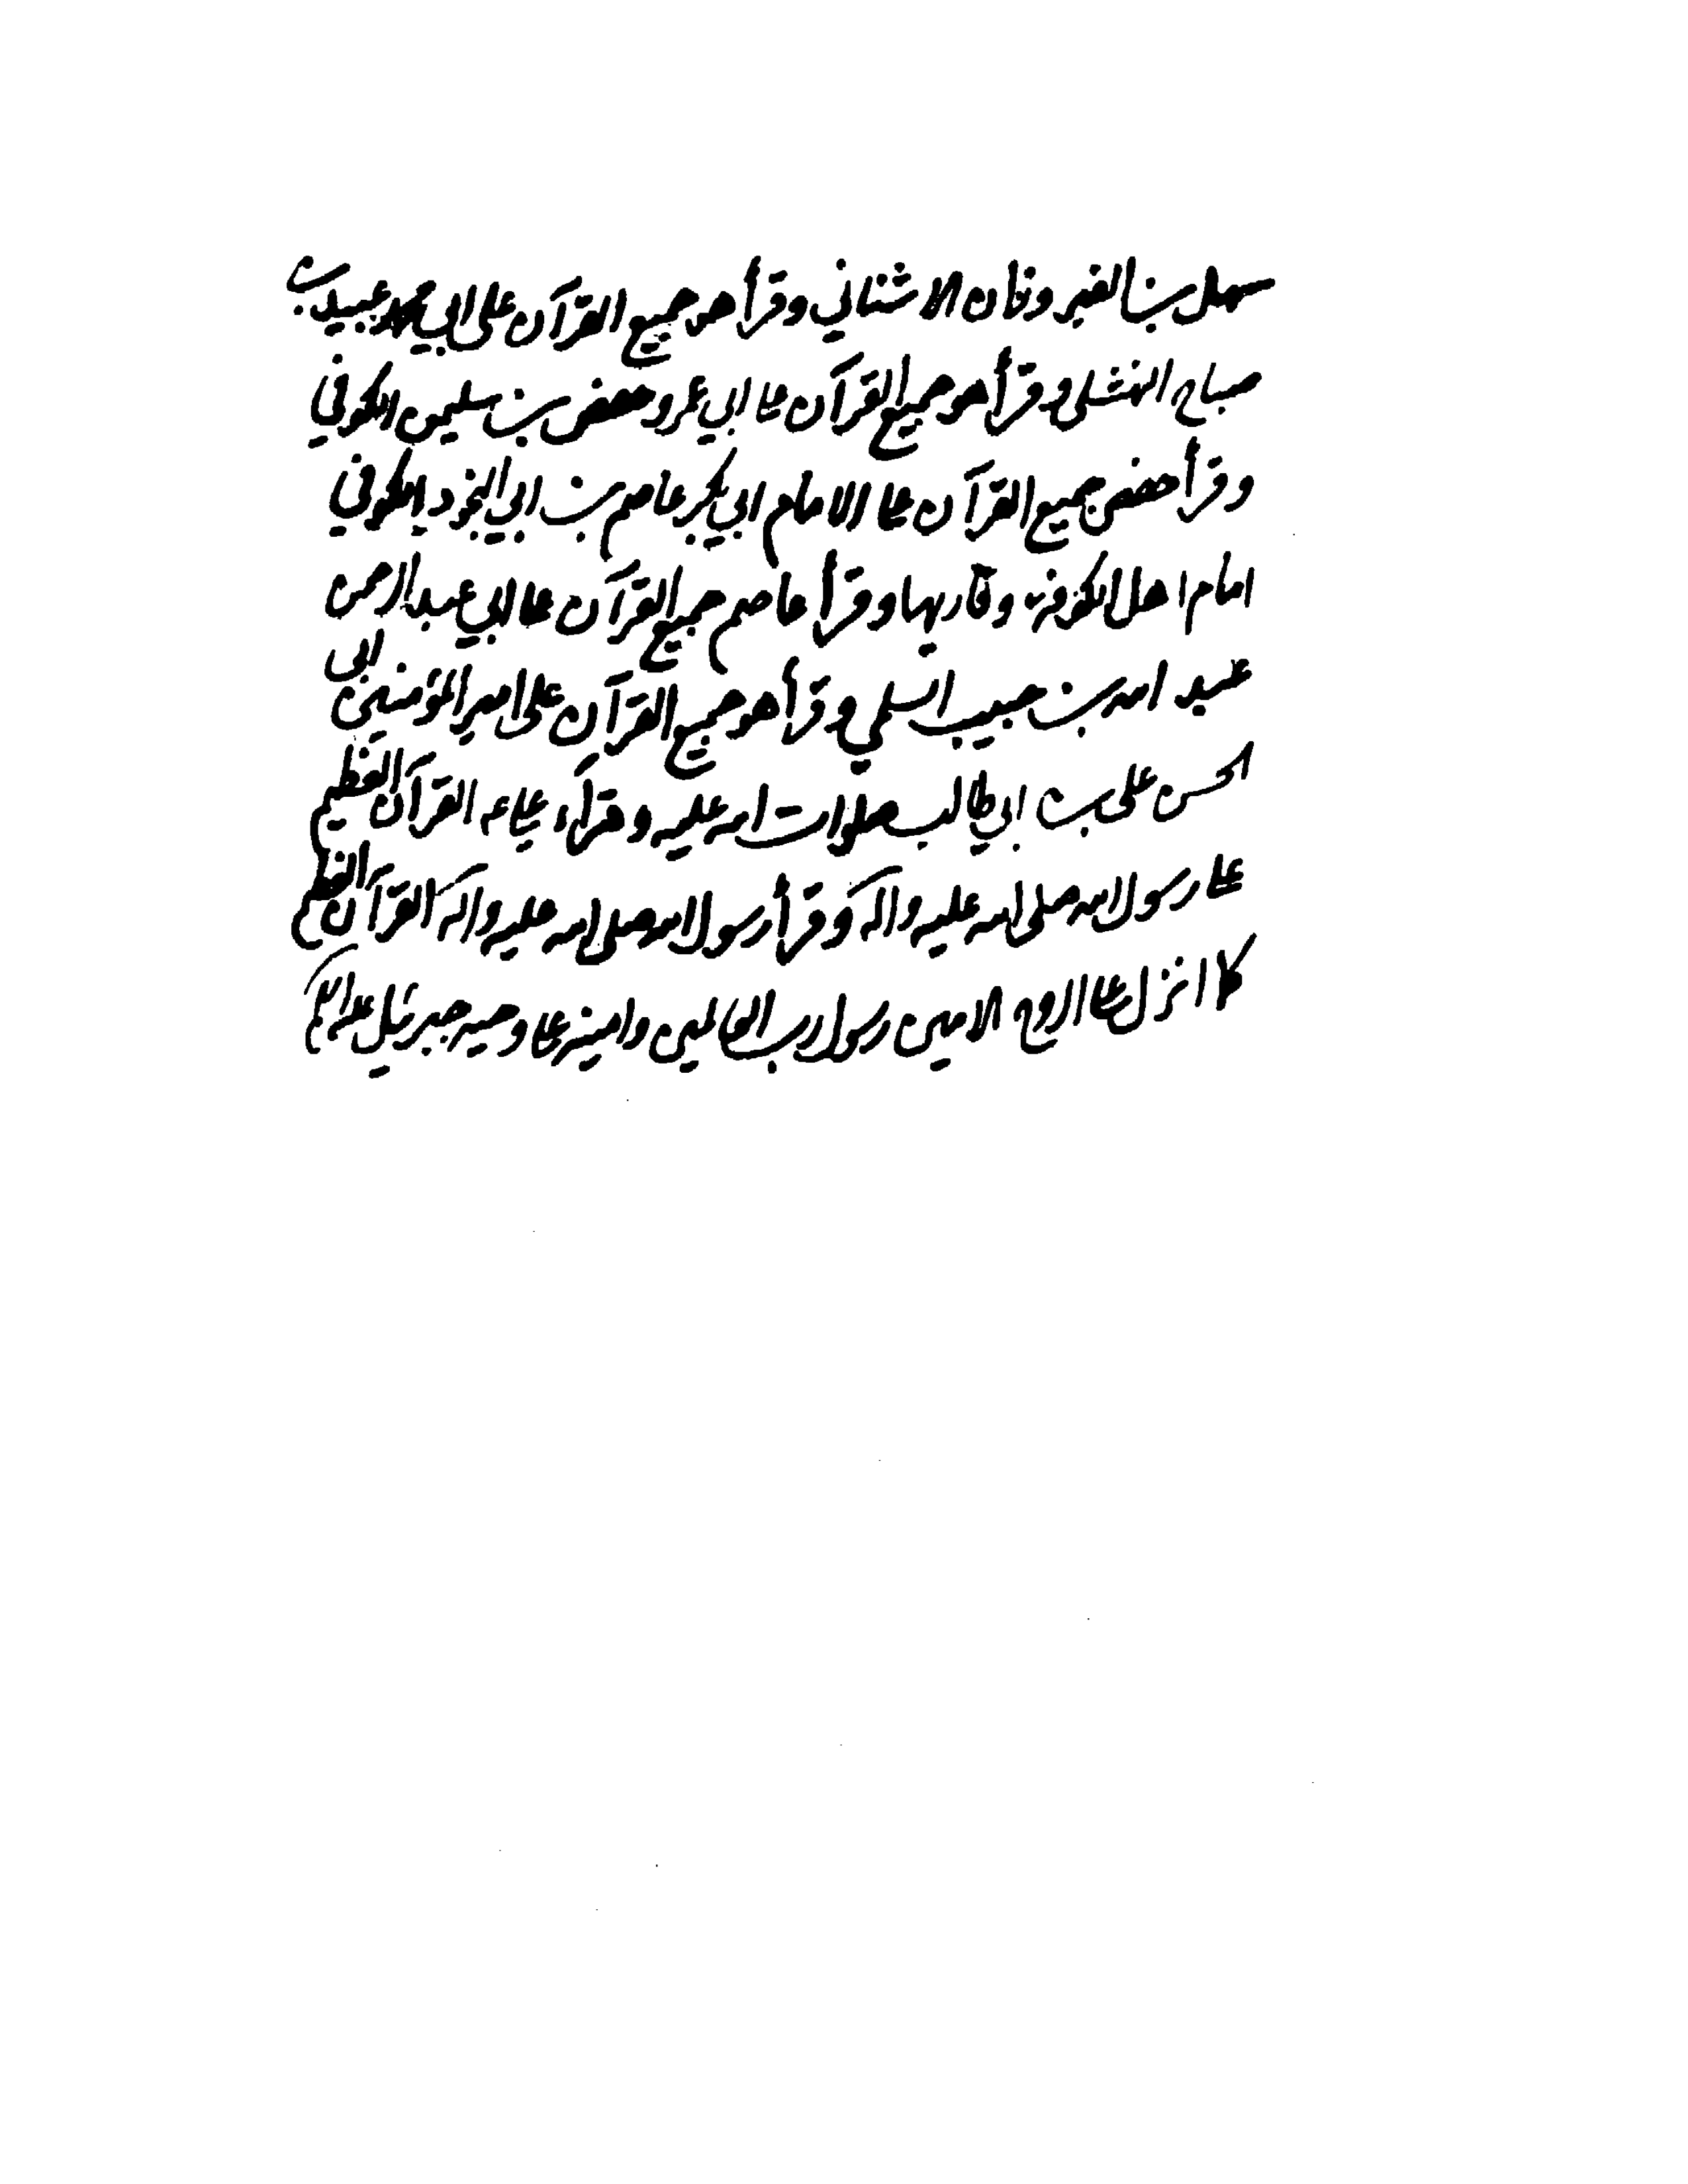 سهل بن الفيروزان الاشناني وقرأ هو جميع القرآن على ابي محمد عبيد بن
صباح النهشلي وقرأ هو جميع القرآن على ابي عمرو حفص بن سليمن الكوفي
وقرأ حفص جميع القرآن على الامام ابي بكر عاصم بن ابي النجود الكوفي
امام اهل الكوفة وقاريها وقرأ عاصم جميع القرآن على ابي عبد الرحمن
عبد الله بن حبيب السلمي وقرأ هو جميع القرآن على امير المؤمنين ابي
الحسن على بن ابي طالب صلوات الله عليه وقرأ القرآن العظيم
على رسول الله صلى الله عليه واله وقرأ رسول الله صلى الله عليه واله القرآن العظيم
كما انزل على الروح الامين رسول رب العالمين وامينه على وحيه جبرئيل عليه السلام